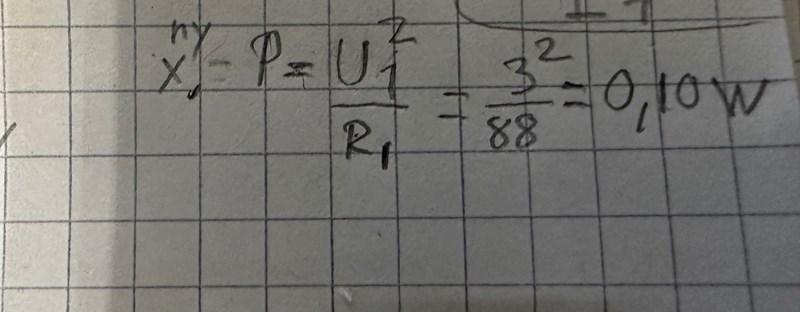 ny
X - P = U₁² / R₁ = 3² / 88 = 0,10 W